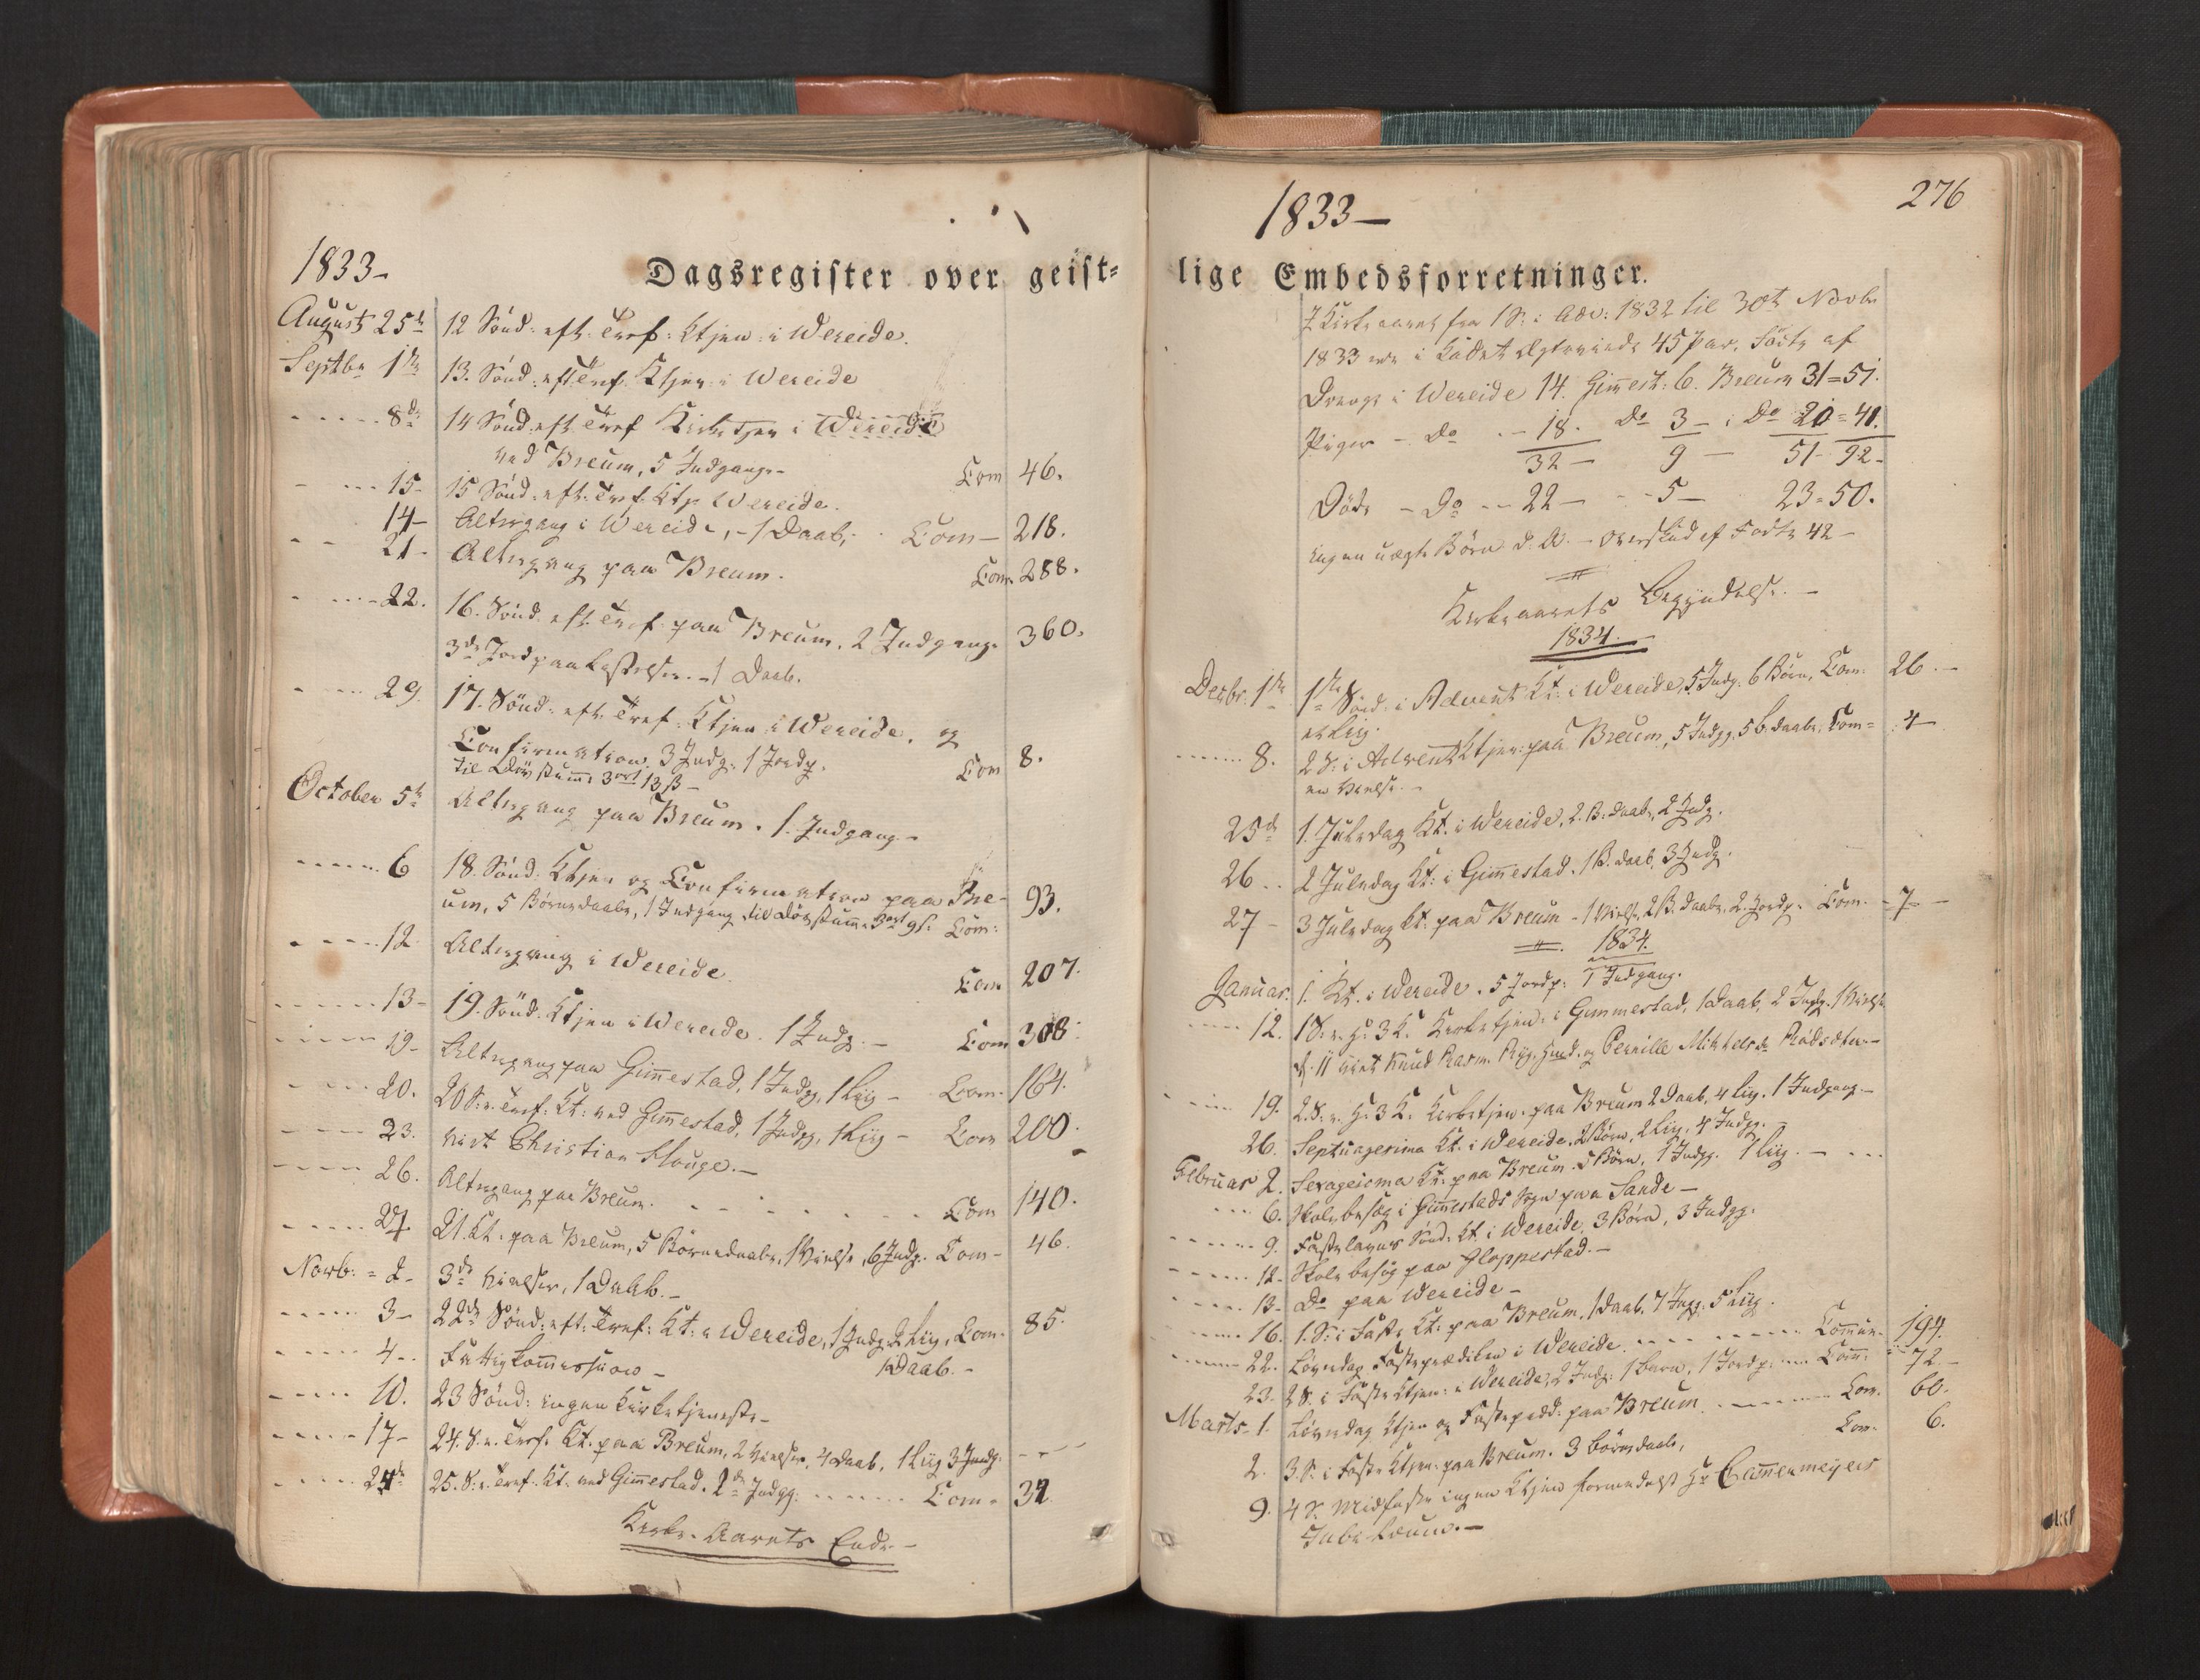 1833-
Dagsregister over geist=
August 25de 12 Sönd: eft. Tref: Ktjen: i Wereide.
Septbr 1ste 13. Sönd: eft. Tref. Ktjen: i Wereide
8de 14 Sönd. eft Tref Kirketjen i Wereide
ved Breum, 5 Indgange- Com 46.
15- 15 Sönd: eft. Tref. Ktj. Wereide.
14- Altergang i Wereide, -1 Daab, Com- 218.
21- Altergang paa Breum. Com 288.
22. 16. Sönd eft Tref. paa Breum. 2 Indgange 360.
3de Jordpaakastelser. -1 Daab.
29. 17. Sönd: eft. Tref: Ktjen i Wereide. og
Confirmation. 3 Indg: 1 Jordp. Com 8.
til Døvstumme 3ort 13 ß-
October 5te Altergang paa Breum. 1. Indgang-
6 18. Sönd: Ktjen og Confirmation paa Bre-
um, 5 Börnedaabe, 1 Indgang til Døvstumme 3ort 9ß: Com: 93.
12 Altergang i Wereide. Com 207.
13- 19. Sönd. Ktjen i Wereide. 1 Indg.- Com 308.
19- Altergang paa Gimmestad, 1 Indgg, 1 Liig- Com. 164.
20. 20 S. e. Tref: Kt: ved Gimmestad, 1 Indgg, 1 Liig- Com 200.
23. viet Christian
26. Altergang paa Breum. Com 140.
27. 21. Kt. paa Breum, 5 Börnedaabe, 1 Vielse, 6 Indg. Com- 46.
Novb: = 2- 3de Vielser, 1 Daab.-
3- 22de Sönd: eft: Tref: Kt: i Wereide, 1 Indg. 2 Liig, Com- 85.
1 Daab.-
4- Fattigkommission-
10. 23 Sönd: ingen Kirketjeneste-
17- 24. S. e. Tref. Kt. paa Breum, 2 Vielser, 4 Daab, 1 Liig 3 Indg.
24de 25. S. e. Tref. Kt. ved Gimmestad. 2de Indgg. Com- 32.
Kirke-Aarets Ende-
1833- 276
lige Embedsforretninger.
I Kirkeaaret fra 1 S: i Adv: 1832 til 30te Novbr
1833 ere i Kaldet Ægteviede 45 Par. Födte af
Drenge i Wereide 14. Gimmest: 6. Breum 31=51.
Piger - Do - 18. Do 3- i Do 20=41.
32- 9- 51- 92-
Döde - Do - 22- - 5- 23=50.
ingen uægte Börn d. A. - Overskud af Fødte 42-
Kirkeaarets Begyndelse.-
1834.-
Decbr. 1ste 1ste Sönd: i Advent Kt: i Wereide, 5 Indg. 6 Börn, Com: 26.-
et Liig.
8. 2 S: i Advent Ktjen: paa Breum, 5 Indgg. 5 B. daabe, Com= 4-
en Vielse.-
25de 1. Juledag Kt. i Wereide, 2. B. daabe, 2 Indg.
26.. 2 Juledag Kt: i Gimmestad. 1 B. daab, 3 Indg.
27- 3 Juledag Kt: paa Breum - 1 Vielse, 2 B. daabe, 2. Jordp. Com. -7-
1834.
Januar. 1. Kt. i Wereide. 5 Jordp: 1 Indgang.
12. 1 S. e. H. 3 K. Kirketjen: i Gimmestad, 1 Daab, 2 Indg. 1 Vielse
d. 11 viet Knud Rasm. og Pernille Mikkelsdr
19. 2 S. e. H. 3 K. Kirketjen. paa Breum 2 Daab, 4 Liig. 1 Indgang.-
26. Septuagesima Kt. i Wereide. 2 Börn, 2 Liig, 4 Indgg.
Februar 2. Sexagesima Kt. paa Breum. 5 Börn, 1 Indgg. 1 Liig.
6. Skolebesøg i Gimmestads Sogn paa Sande-
9. Fastelavns Sönd: Kt. i Wereide, 3 Börn, 3 Indgg.
12. Skolebesøg paa Gloppestad.-
13- Do paa Wereide-
16. 1. S: i Faste Kt: paa Breum, 1 Daab, 7 Ingg. 5 Liig.
22. Løverdag Fasteprædiken i Wereide. Commun- 194.
23. 2 S. i Faste Ktjen: i Wereide, 2 Indg: 1 barn, 1 Jordp: Com: 72.-
Marts 1. Løverdag Ktjen og Fastepræd: paa Breum. Com. 60.
2. 3. S: i Faste Ktjen: paa Breum. 3 börnedaab, Com. 6.
9. 4 S. Midfaste ingen Ktjen formedelst Hr Cammermeyers